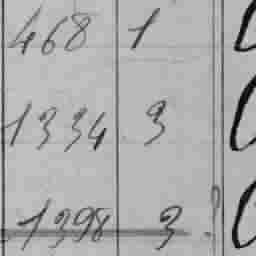 468 1
1334 3
1398 3